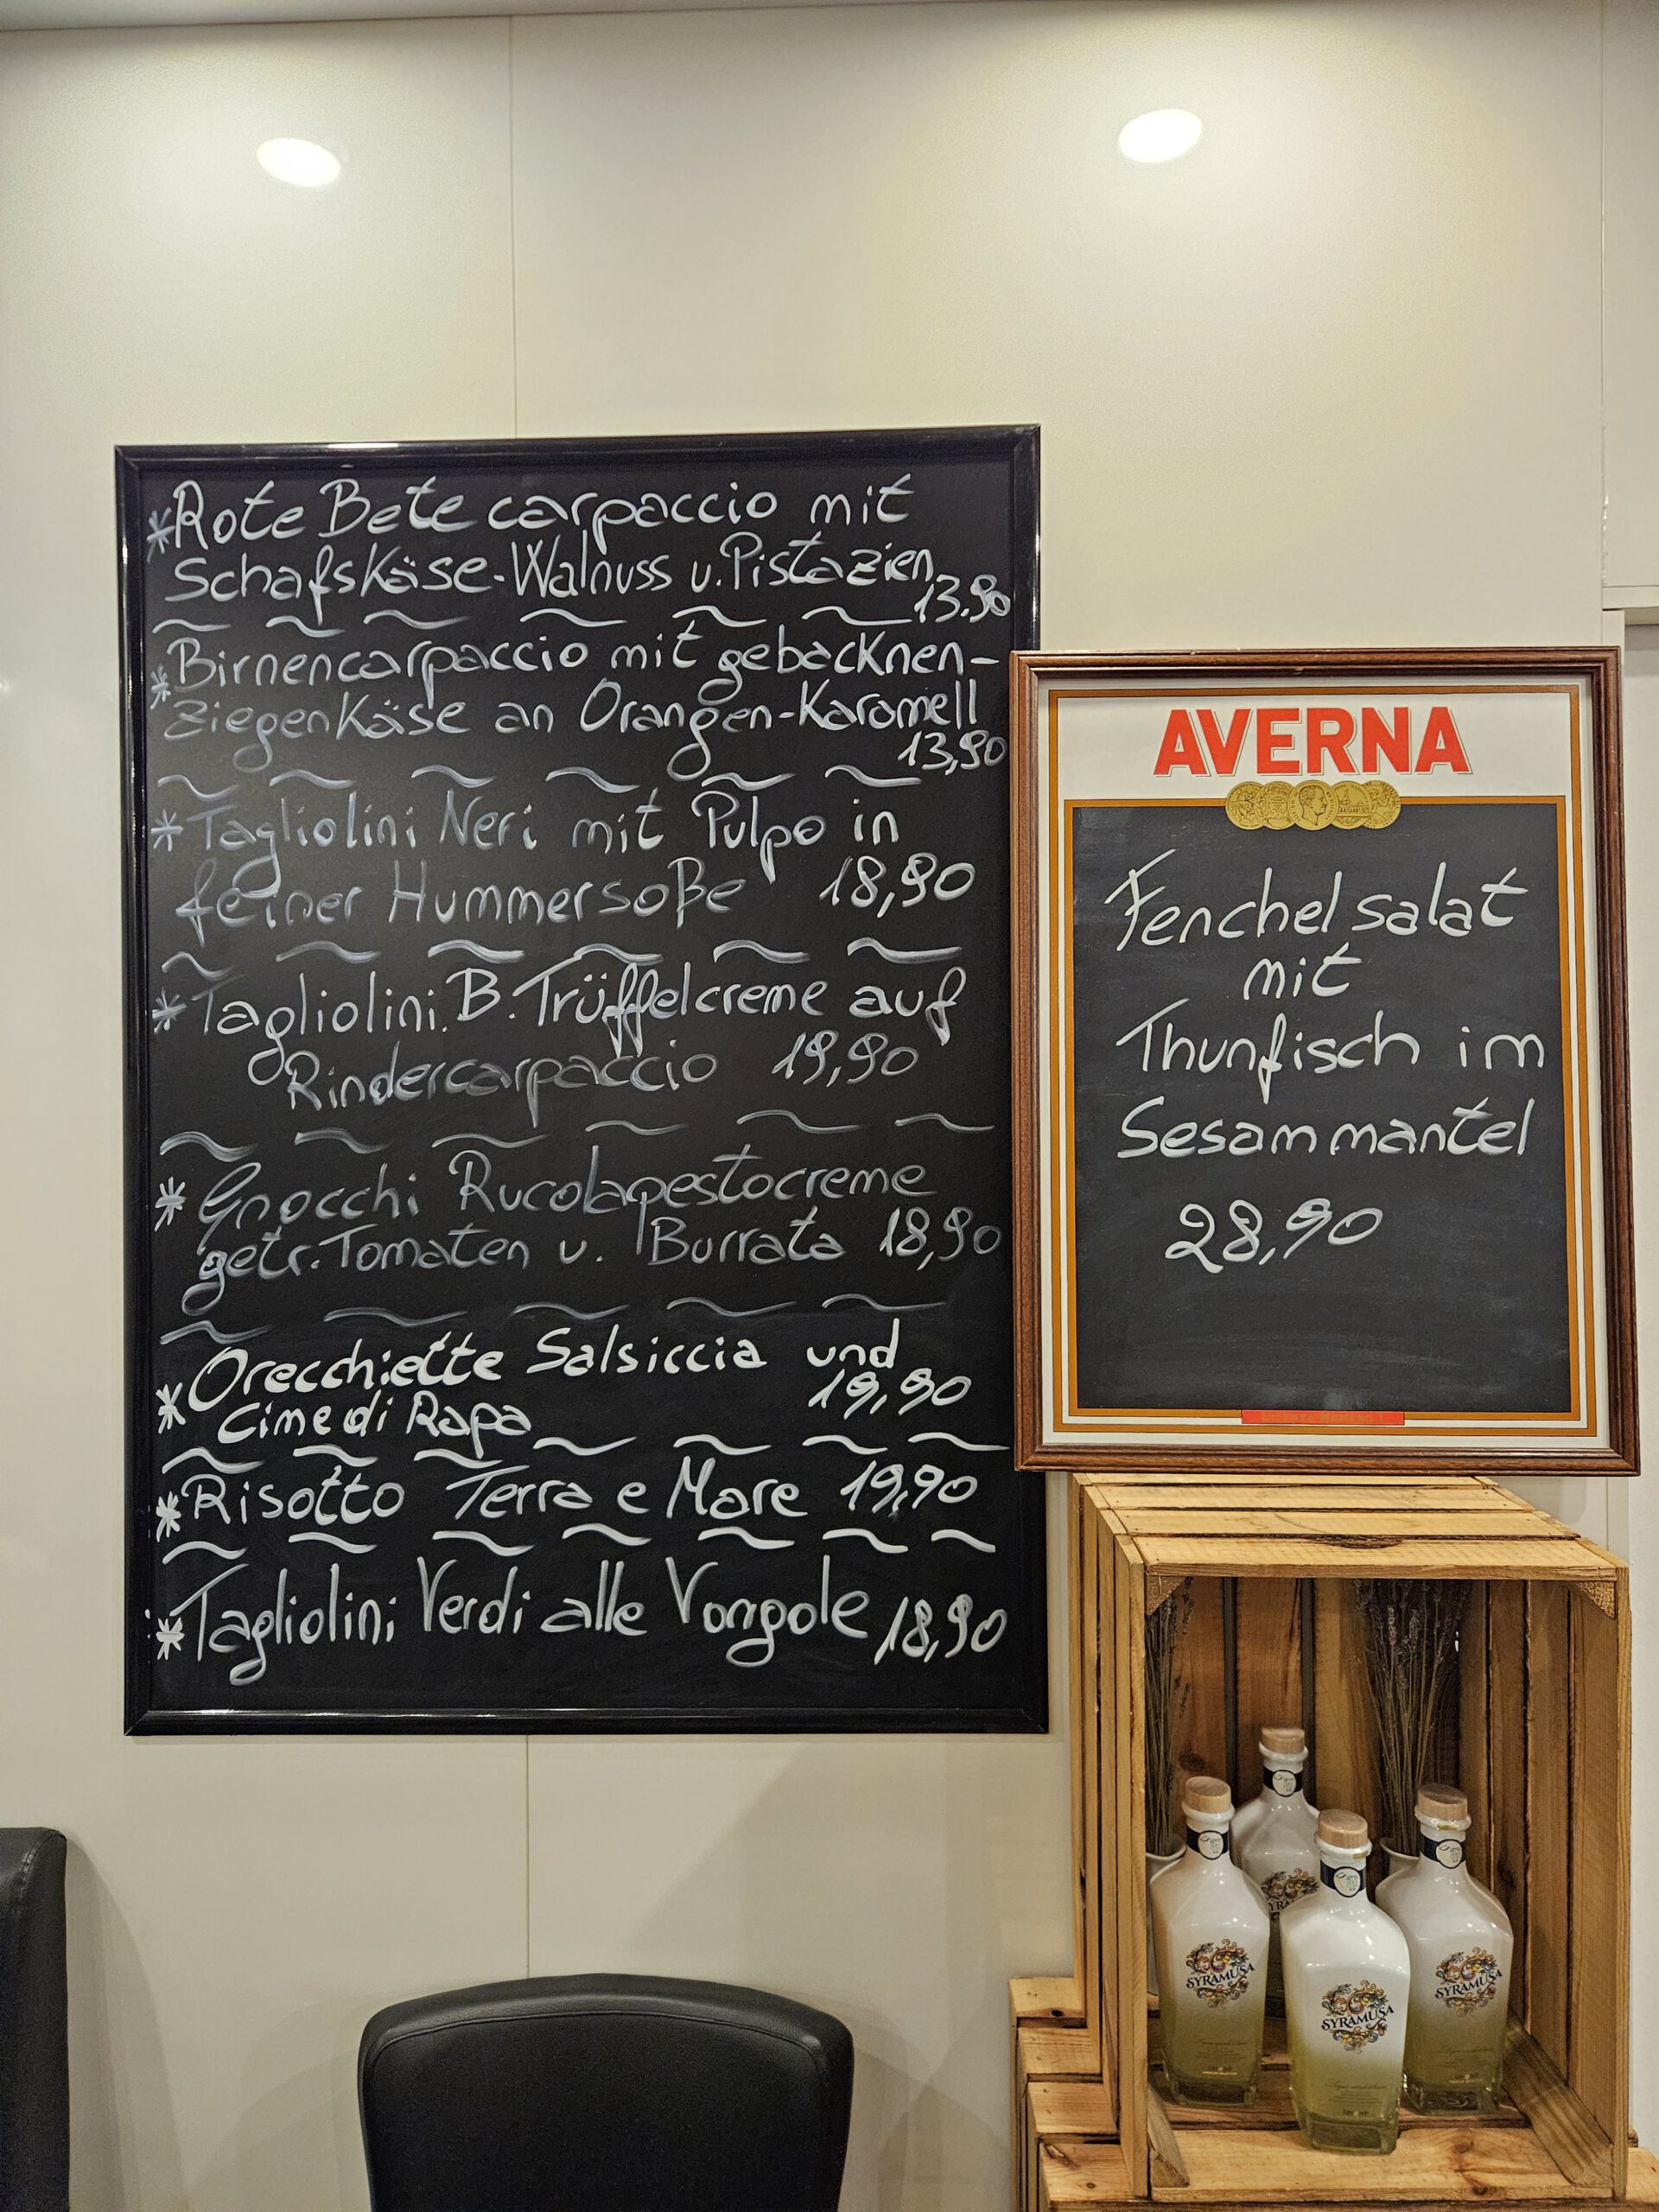 *Rote Bete carpaccio mit
Schafskäse-Walnuss u. Pistazien
13.90
*Birnencarpaccio mit gebacknen-
Ziegenkäse an Orangen-Karamell
13,90
*Tagliolini Neri mit Pulpo in
feiner Hummersoße 18,90
*Tagliolini.B.Trüffelcreme auf
Rindercarpaccio 19,90
*Gnocchi Rucolapestocreme
getr.Tomaten u. Burrata 18,90
*Orecchiette Salsiccia und
Cime di Rapa 19,90
*Risotto Terra e Mare 19,90
*Tagliolini Verdi alle Vongole 18,90
AVERNA
Fenchelsalat
mit
Thunfisch im
Sesammantel
28,90
SYRAMUSA
SYRAMUSA
SYRAMUSA